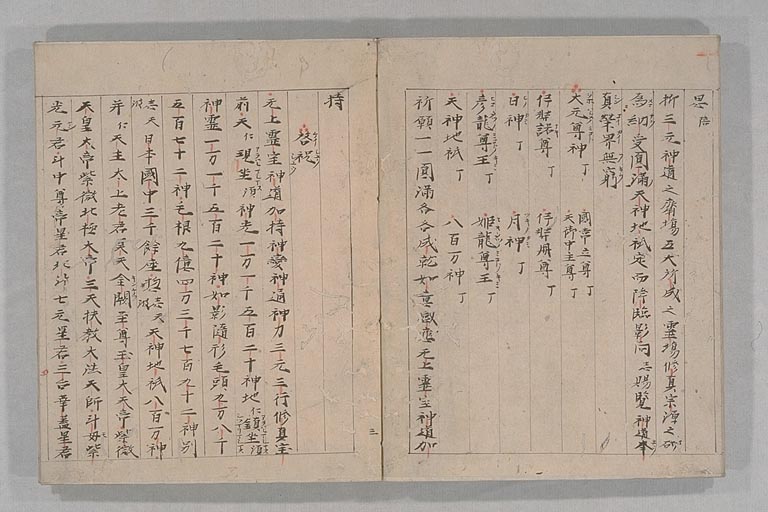 祈三元神道之齋場五大所成之靈場修真宗源之
為納受圓滿天神地祇定而降臨影向志賜覽神道奉
真繁界無窮
大元尊神丁 國常立尊丁 天御中主尊丁
伊弉諾尊丁 伊弉冊尊丁
日神丁 月神丁
彦龍尊王丁 姫龍尊王丁
天神地祇丁 八百万神丁
祈願一一圓滿各各成乾如意 元上靈宝神道加
持
啓祝
元上靈宝神道加持神變神通神力三元三行修真宝
前天仁現坐須神光一万一千五百二十神地仁鎮坐須
神靈一万一千五百二十神如影隨形毛頭九万八千
五百七十二神毛根九億四万三千七百九十二神別
志天日本國中三千餘座 天神地祇八百万神
并仁天主太上老君昊天金闕至尊玉皇大天帝紫微
天皇大帝紫微北極大帝三天扶教大法天師斗母紫
光元君斗中尊帝星君北斗七元星君三台華蓋星君
三